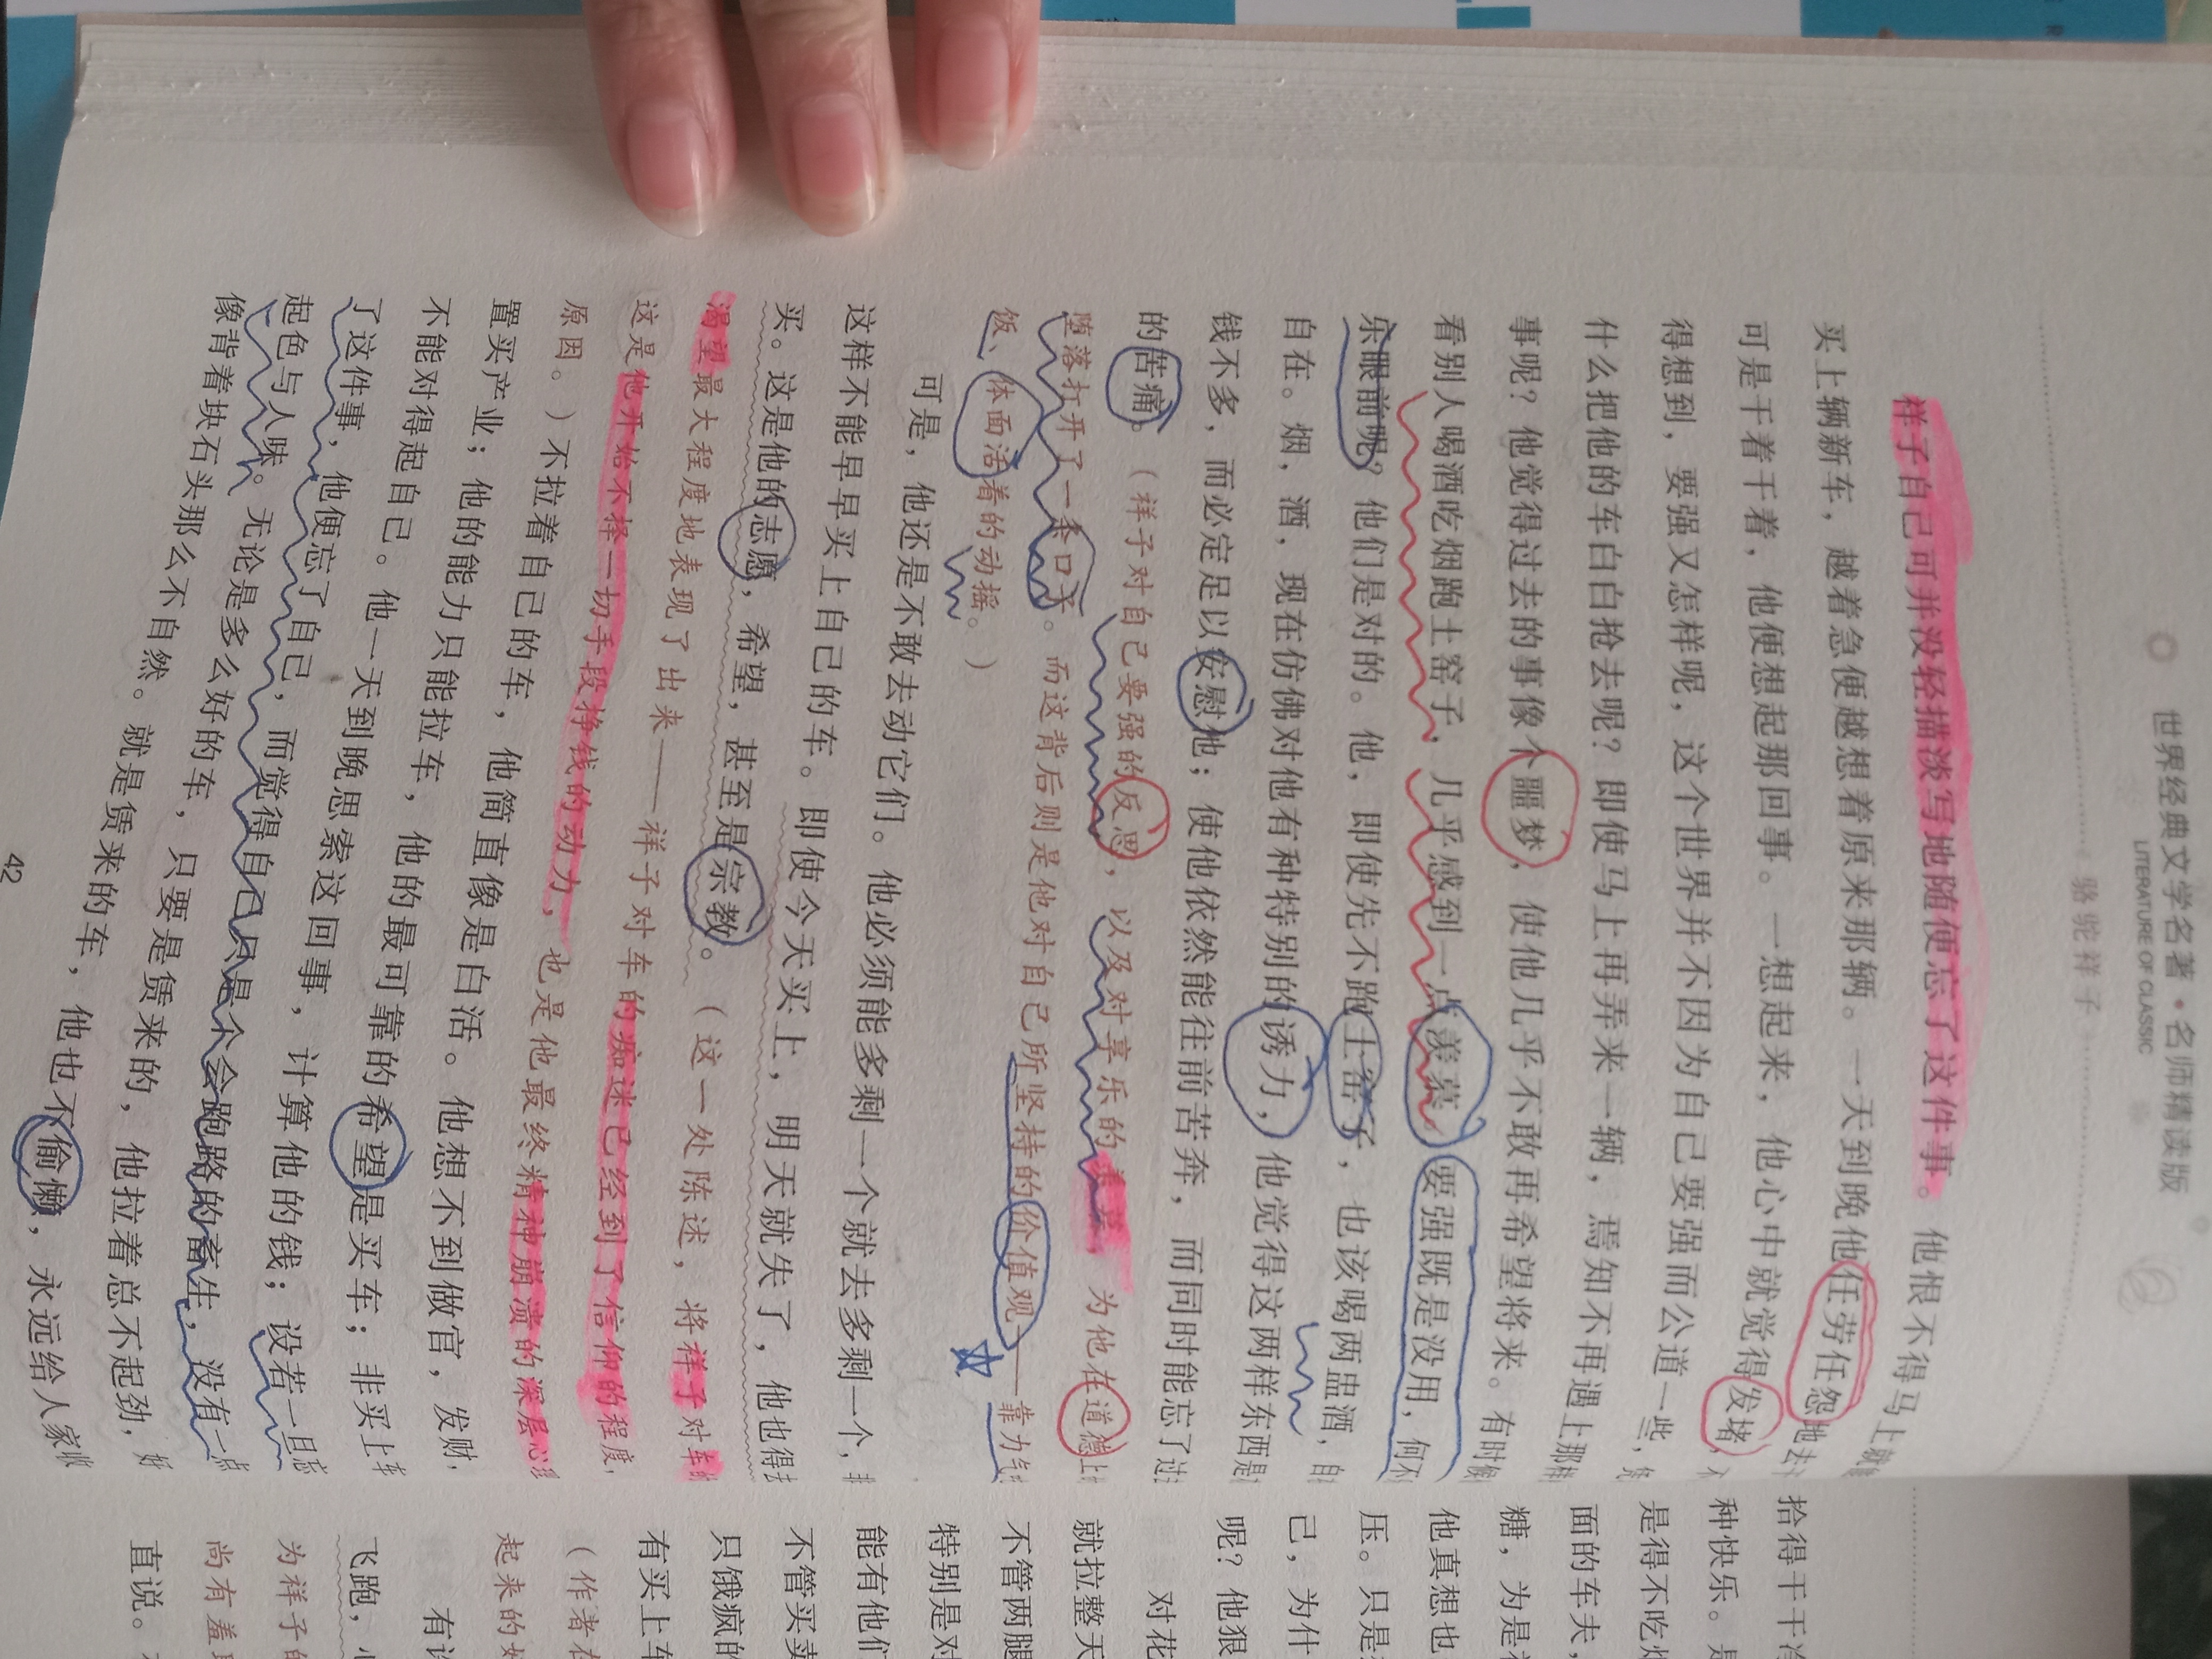 世界经典文学名著·名师精读版
LITERATURE OF CLASSIC
骆驼祥子
祥子自己可并没轻描淡写地随便忘了这件事。他恨不得马上就
买上辆新车，越着急便越想着原来那辆。一天到晚他任劳任怨地去
可是干着干着，他便想起那回事。一想起来，他心中就觉得发堵，
得想到，要强又怎样呢，这个世界并不因为自己要强而公道一些，凭
什么把他的车白白抢去呢？即使马上再弄来一辆，焉知不再遇上那样
事呢？他觉得过去的事像个噩梦，使他几乎不敢再希望将来。有时候
看别人喝酒吃烟跑土窑子，几乎感到一点羡慕。要强既是没用，何不
乐眼前呢？他们是对的。他，即使先不跑土窑子，也该喝两盅酒，自
自在。烟，酒，现在仿佛对他有种特别的诱力，他觉得这两样东西是
钱不多，而必定足以安慰他；使他依然能往前苦奔，而同时能忘了过
的苦痛。（祥子对自己要强的反思，以及对享乐的羡慕，为他在道德上
堕落打开了一条口子。而这背后则是他对自己所坚持的价值观——靠力气
饭、体面活着的动摇。）
可是，他还是不敢去动它们。他必须能多剩一个就去多剩一个，非
这样不能早早买上自己的车。即使今天买上，明天就失了，他也得去
买。这是他的志愿，希望，甚至是宗教。（这一处陈述，将祥子对车的
渴望最大程度地表现了出来——祥子对车的痴迷已经到了信仰的程度，
这是他开始不择一切手段挣钱的动力，也是他最终精神崩溃的深层心理
原因。）不拉着自己的车，他简直像是白活。他想不到做官，发财，
置买产业；他的能力只能拉车，他的最可靠的希望是买车；非买上车
不能对得起自己。他一天到晚思索这回事，计算他的钱；设若一旦忘
了这件事，他便忘了自己，而觉得自己只是个会跑路的畜生，没有一点
起色与人味。无论是多么好的车，只要是赁来的，他拉着总不起劲，好
像背着块石头那么不自然。就是赁来的车，他也不偷懒，永远给人家收
42
拾得干干净
种快乐。是
是得不吃烟
面的车夫，
糖，为是补
他真想也
压。只是
己，为什
呢？他狠
对花
就拉整天
不管两腿
特别是对
能有他们
不管买卖
只饿疯的
有买上车
（作者在
起来的
有许
飞跑，小
为祥子的
尚有羞
直说。